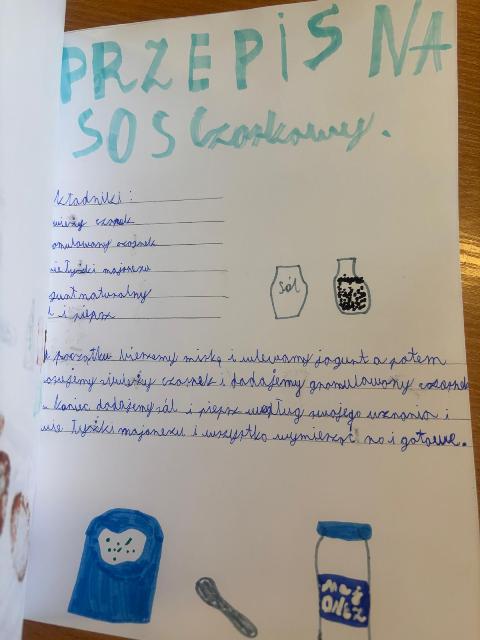 PRZEPIS NA
SOS Czoskowy.
kładniki:
wieży czosnek
anulowany czosnek
wie łyżki majonezu
gurt naturalny
l i pieprz
sól
a początku bierzemy miskę i wlewamy jogurt a potem
świeży czosnek i dodajemy granulowany czosnek
a koniec dodajemy sól i pieprz według swojego uznania i
wie łyżki majonezu i wszystko wymierzać no i gotowe.
MAJ
ONEZ